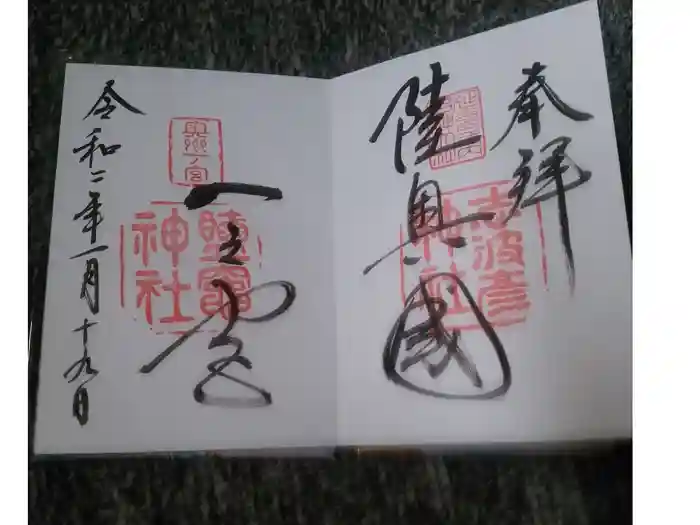 奉拝
陸奥國
志波彦
神社
一之宮
奥州一ノ宮
鹽竈
神社
令和二年一月十九日